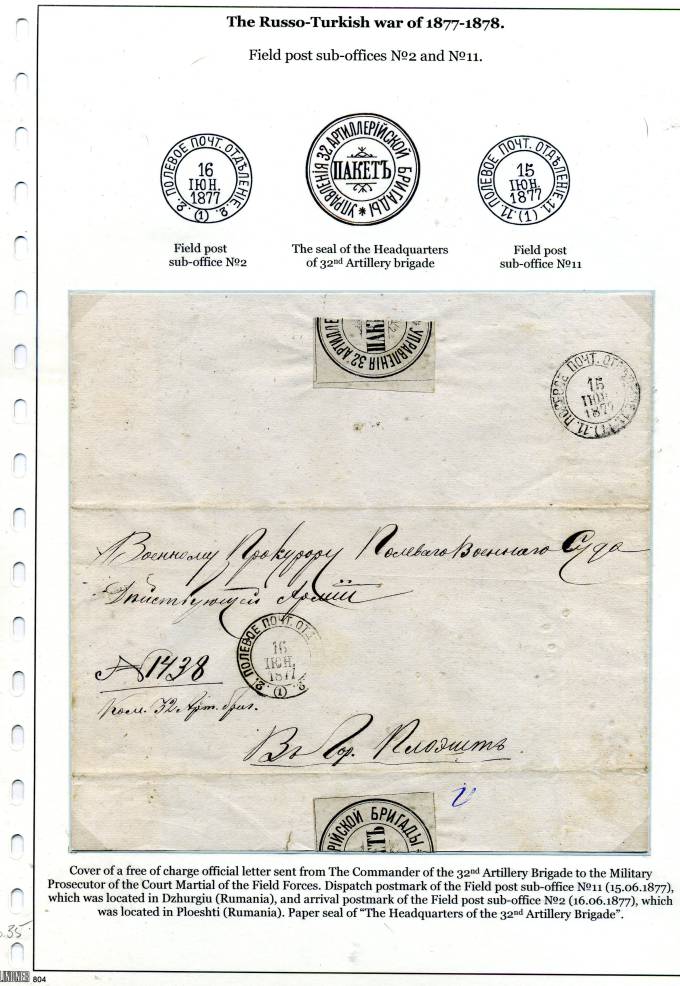 The Russo-Turkish war of 1877-1878.
Field post sub-offices №2 and №11.
2. ПОЛЕВОЕ ПОЧТ. ОТДѢЛЕНІЕ. 2.
16
ІЮН.
1877
(1)
УПРАВЛЕНІЯ 32. АРТИЛЛЕРІЙСКОЙ БРИГАДЫ
ПАКЕТЪ
11. ПОЛЕВОЕ ПОЧТ. ОТДѢЛЕНІЕ. 11.
15
ІЮН.
1877
(1)
Field post
sub-office №2
The seal of the Headquarters
of 32nd Artillery brigade
Field post
sub-office №11
УПРАВЛЕНІЯ 32. АРТИЛЛЕ
ПАКЕТЪ
11. ПОЛЕВОЕ ПОЧТ. ОТДѢЛЕНІЕ. 11.
15
ІЮН.
1877
(1)
Военному Прокурору Полеваго Военнаго Суда
Дѣйствующей Арміи
2. ПОЛЕВОЕ ПОЧТ. ОТД
16
ІЮН.
1877
(1) 2
№ 1438
Ком. 32 Арт. бриг.
Въ Гор. Плоэштъ.
РІЙСКОЙ БРИГАДЫ
ЕТЪ
Cover of a free of charge official letter sent from The Commander of the 32nd Artillery Brigade to the Military
Prosecutor of the Court Martial of the Field Forces. Dispatch postmark of the Field post sub-office №11 (15.06.1877),
which was located in Dzhurgiu (Rumania), and arrival postmark of the Field post sub-office №2 (16.06.1877), which
was located in Ploeshti (Rumania). Paper seal of “The Headquarters of the 32nd Artillery Brigade”.
LINDNER 804